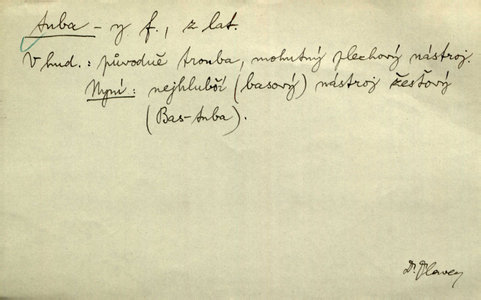 tuba – y f., z lat.
V hud.: původně trouba, mohutný plechový nástroj.
Nyní: nejhlubší (basový) nástroj žesťový
(Bas-tuba).
Dr.